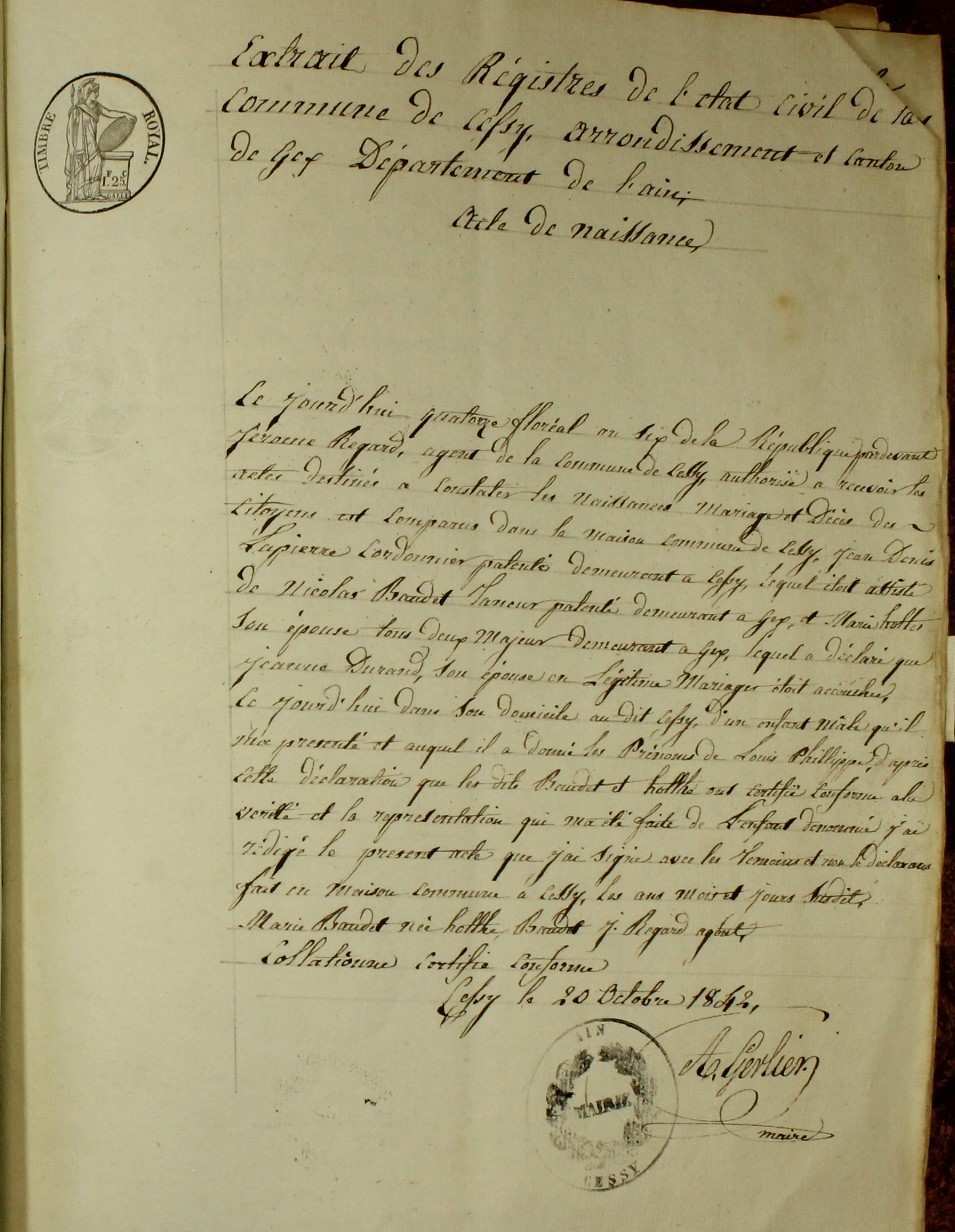 TIMBRE ROYAL.
F. C.
1. 25
Extrait des Régistres de l'etat civil de la
commune de Cessy, arrondissement et canton
de Gex Département de l'ain,
Acte de naissance,
Ce jourd'hui quatorze floréal an six de la République pardevant
Jerome Regard, agent de la Commune de Cessy, authorisé a recevoir les
actes destinés a constater les Naissances Mariage et Décès des
Citoyens est comparus dans la maison commune de Cessy, Jean Denis
Lapierre Cordonnier patenté demeurant a Cessy, lequel étoit assisté
de Nicolas Baudet Taneur patenté demeurant a Gex, et Marie
Son épouse tous deux Majeur demeurant a Gex, lequel a déclaré que
Jeanne Durand, son épouse en Légitime Mariage étoit accouchée,
Ce jourd'hui dans son domicile au dit Cessy, d'un enfant mâle qu'il
m'a presenté et auquel il a donné les Prénoms de Louis Phillippe, d'après
cette déclaration que les dits Baudet et ont certifié conforme a la
verité et la représentation qui m'a été faite de L'enfant denommé j'ai
rédigé le present acte que j'ai signé avec les temoins et non le déclarant
fait en maison commune à Cessy, les ans mois et jours susdit,
Marie Baudet née Baudet J. Regard agent,
Collationné certifié conforme
Cessy le 20 Octobre 1842,
A. Gerlier
maire
AIN
MAIRIE
CESSY